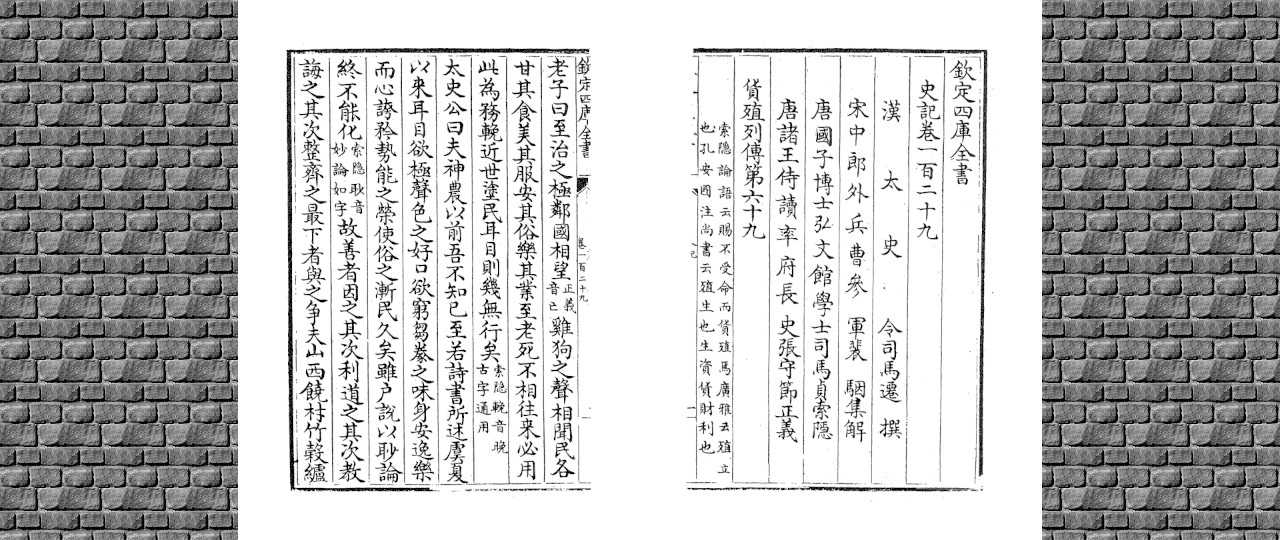 欽定四庫全書
史記卷一百二十九
漢太史令司馬遷撰
宋中郎外兵曹參軍裴駰集解
唐國子博士弘文館學士司馬貞索隱
唐諸王侍讀率府長史張守節正義
貨殖列傳第六十九
索隱論語云賜不受命而貨殖焉廣雅云殖立
也孔安國注尚書云殖生也生資貨財利也
欽定四庫全書
卷一百二十九
老子曰至治之極鄰國相望正義音亡雞狗之聲相聞民各
甘其食美其服安其俗樂其業至老死不相往來必用
此為務輓近世塗民耳目則幾無行矣索隱輓音晚古字通用
太史公曰夫神農以前吾不知已至若詩書所述虞夏
以來耳目欲極聲色之好口欲窮芻豢之味身安逸樂
而心誇矜勢能之榮使俗之漸民久矣雖戶說以眇論
終不能化索隱眇音妙論如字故善者因之其次利道之其次教
誨之其次整齊之最下者與之爭夫山西饒材竹榖纑